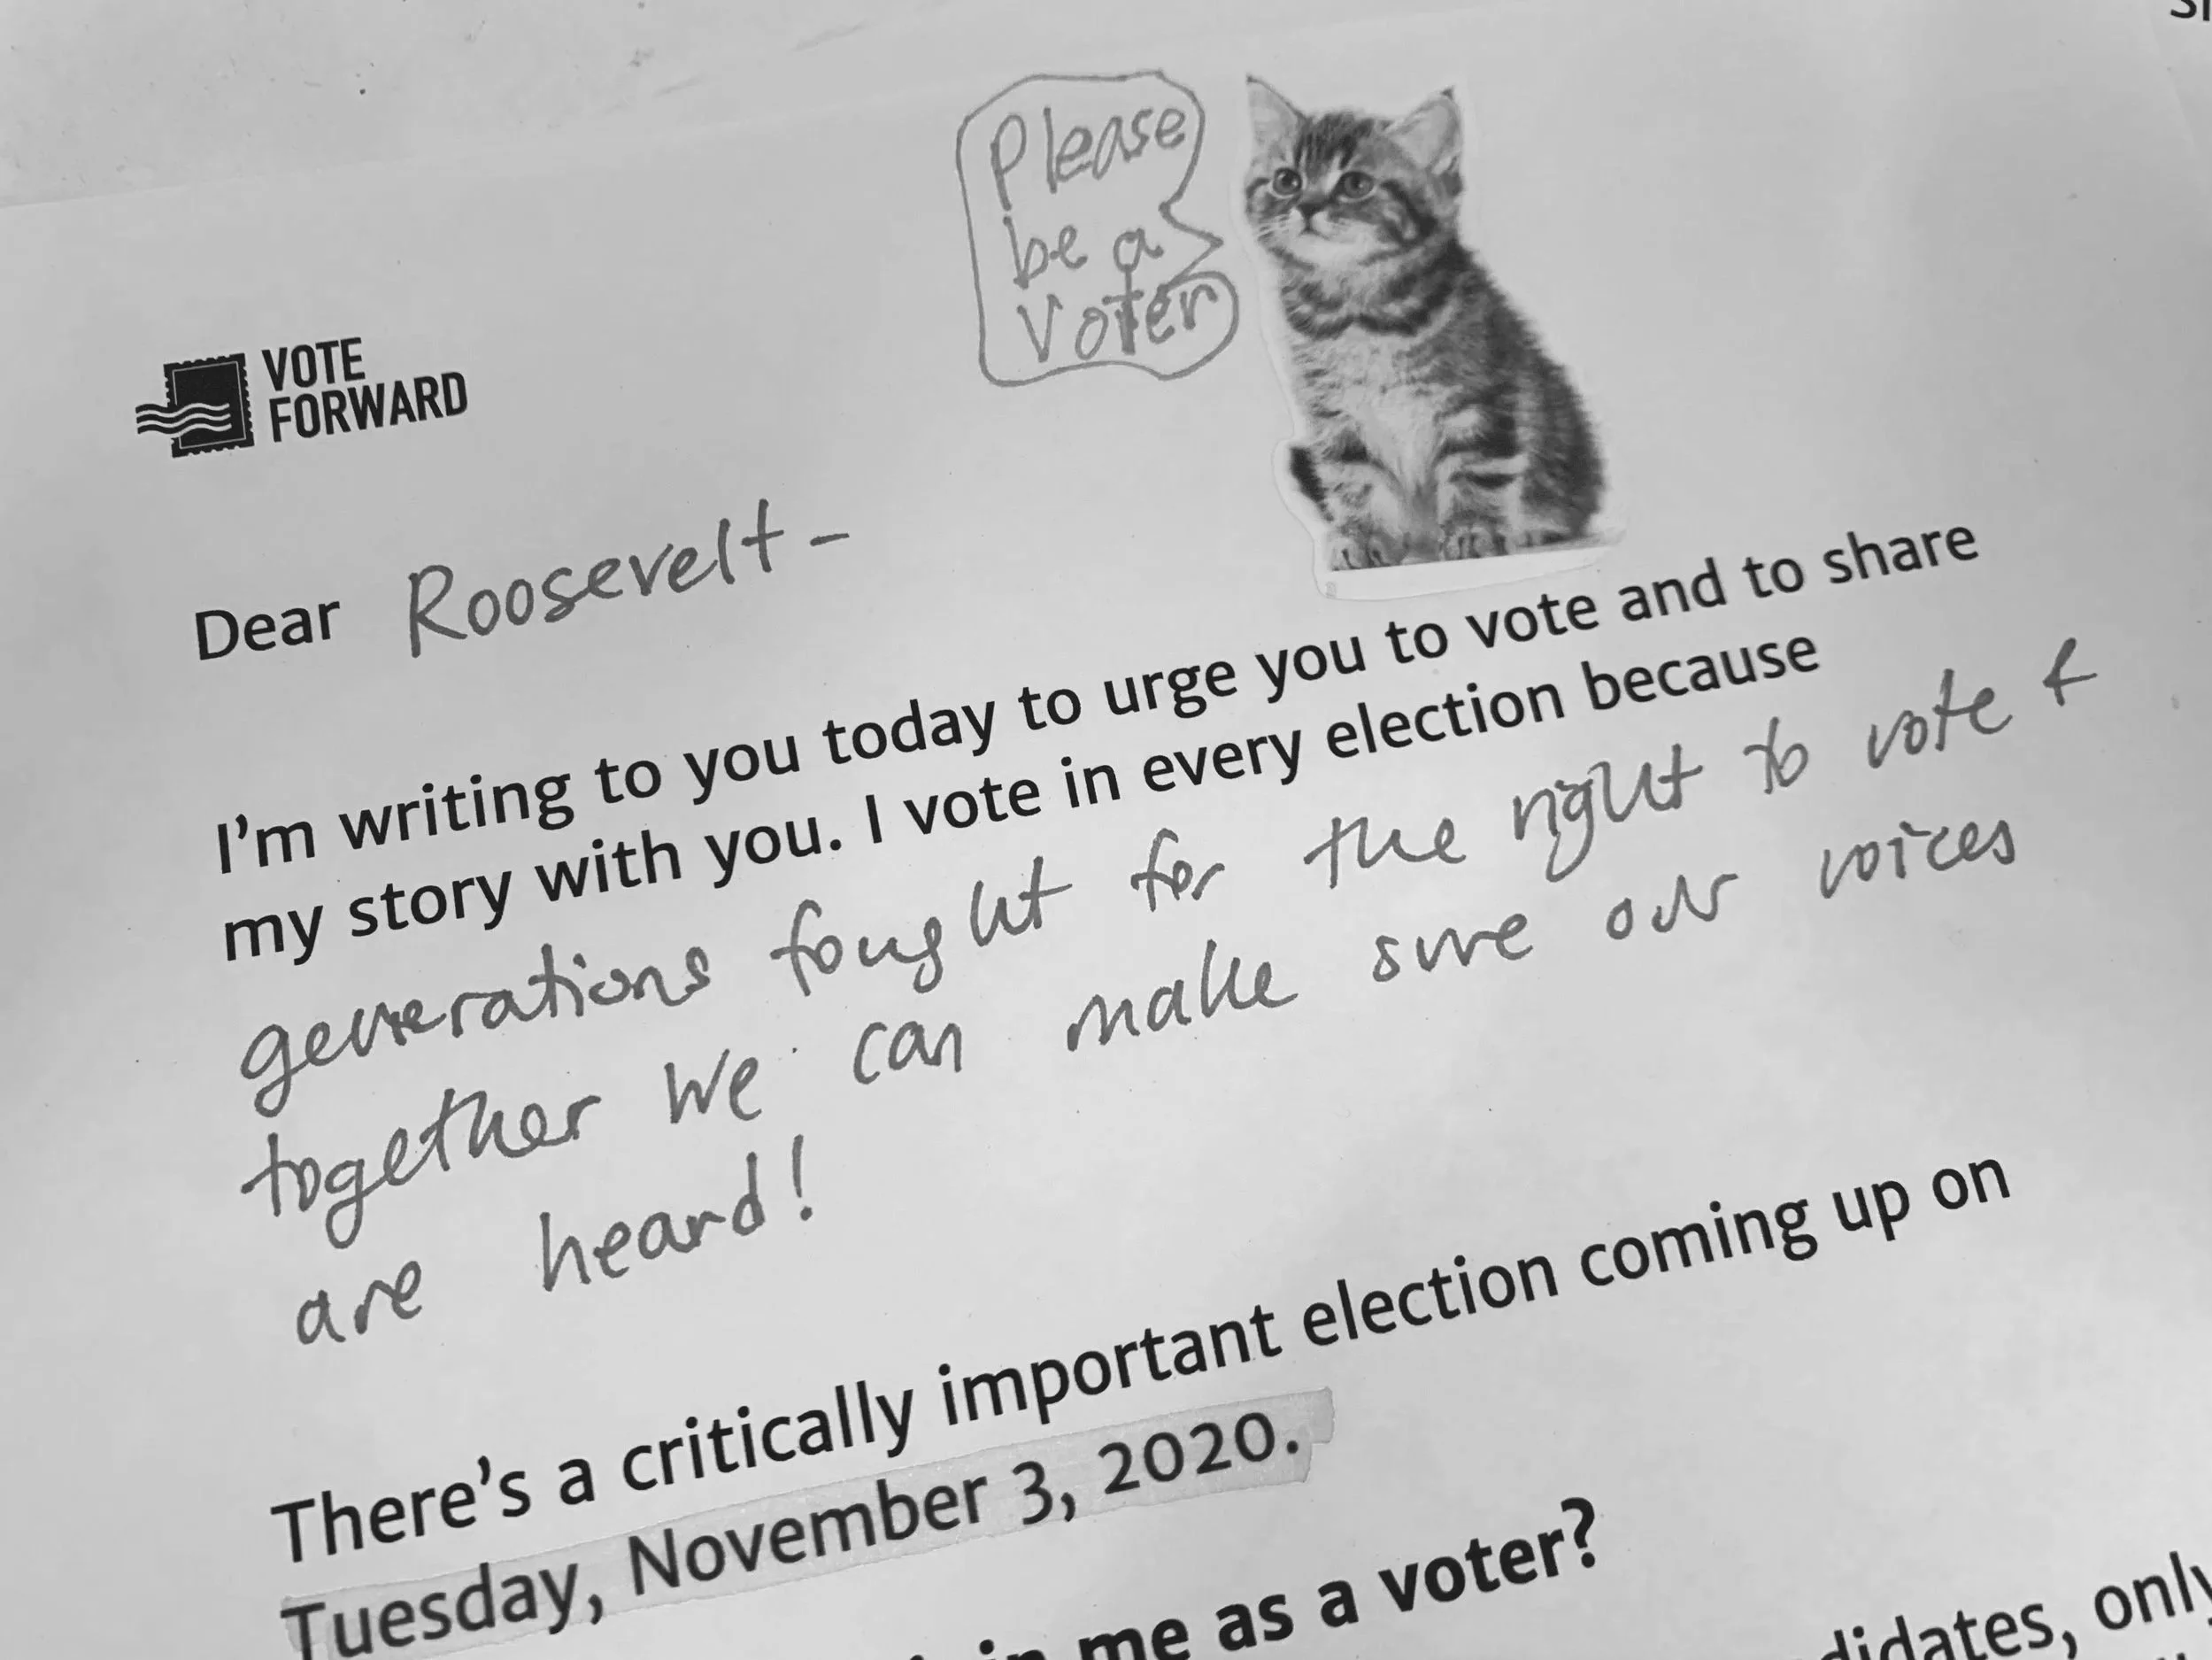 Please
be a
Voter
VOTE
FORWARD
Dear Roosevelt -
I'm writing to you today to urge you to vote and to share
my story with you. I vote in every election because
generations fought for the right to vote &
together we can make sure our voices
are heard!
There's a critically important election coming up on
Tuesday, November 3, 2020.
in me as a voter?
only